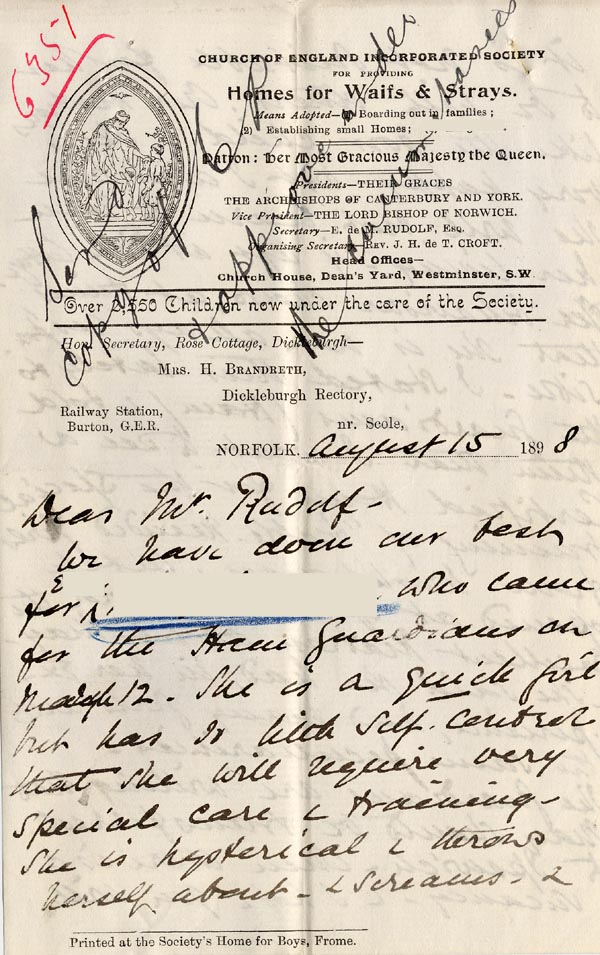 6351
CHURCH OF ENGLAND INCORPORATED SOCIETY
FOR PROVIDING
Homes for Waifs & Strays.
Means Adopted—(1) Boarding out in families;
(2) Establishing small Homes;
Patron: Her Most Gracious Majesty the Queen.
Presidents—THEIR GRACES
THE ARCHBISHOPS OF CANTERBURY AND YORK.
Vice President—THE LORD BISHOP OF NORWICH.
Secretary—E. de M. RUDOLF, Esq.
Organising Secretary—REV. J. H. de T. CROFT.
Head Offices—
Church House, Dean's Yard, Westminster, S.W.
Over 2,550 Children now under the care of the Society.
Hon. Secretary, Rose Cottage, Dickleburgh—
MRS. H. BRANDRETH,
Dickleburgh Rectory,
Railway Station,
Burton, G.E.R.
nr. Scole,
NORFOLK. August 15 1898
copy of
the
Dear Mr. Rudolf—
We have done our best
for who came
for the Guardians on
March 12. She is a quick girl
but has so little Self. Control
that she will require very
special care & training—
She is hysterical & throws
herself about— & screams— &
Printed at the Society's Home for Boys, Frome.